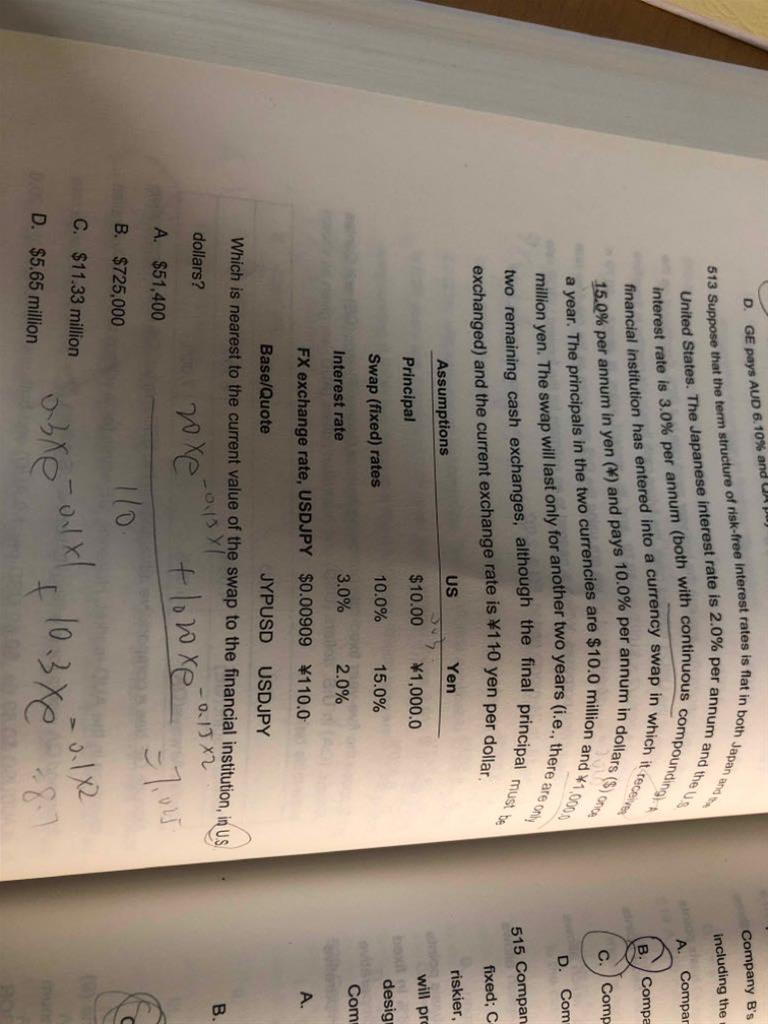 D. GE pays AUD 6.10% and
513 Suppose that the term structure of risk-free interest rates is flat in both Japan and the
United States. The Japanese interest rate is 2.0% per annum and the U.S
interest rate is 3.0% per annum (both with continuous compounding). A
financial institution has entered into a currency swap in which it receives
15.0% per annum in yen (¥) and pays 10.0% per annum in dollars ($) once
a year. The principals in the two currencies are $10.0 million and ¥1,000.0
million yen. The swap will last only for another two years (i.e., there are only
two remaining cash exchanges, although the final principal must be
exchanged) and the current exchange rate is ¥110 yen per dollar.
Assumptions US Yen
Principal $10.00 ¥1,000.0
Swap (fixed) rates 10.0% 15.0%
Interest rate 3.0% 2.0%
FX exchange rate, USDJPY $0.00909 ¥110.0
Base/Quote JYPUSD USDJPY
Which is nearest to the current value of the swap to the financial institution, in U.S.
dollars?
A. $51,400
B. $725,000
C. $11.33 million
D. $5.65 million
20xe^-0.15x1 + 1020xe^-0.15x2
110
0.3xe^-0.1x1 + 10.3xe^-0.1x2
Company B's
including the
A. Compar
B. Compa
C. Comp
D. Com
515 Compan
fixed: C
riskier,
will pro
desig
Com
A.
B.